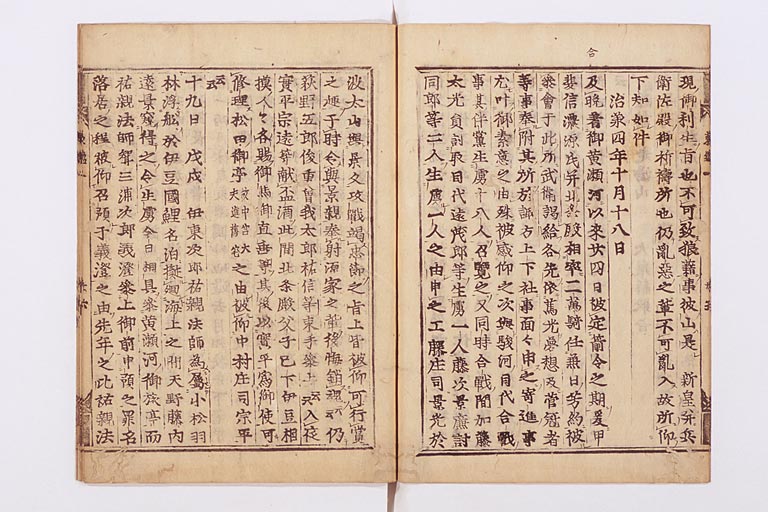 合
現御利生旨也不可致狼藉事彼山是 新皇并兵
衛佐殿御祈禱所也仍乱悪之輩不可亂入故所仰
下知如件
治承四年十月十八日
及晩着御黄瀬河以来廿四日被定箭合之期爰甲
斐信濃源氏并北条殿相率二萬騎任兼日芳約被
参會于此所武衛謁給各先依篤光夢想及菅冠者
等事奉附其所於諏方上下社事面々申之寄進事
尤叶御素意之由殊被感仰之次與駿河目代合戰
事其伴黨生虜十八人召覽之又同時合戰間加藤
太光員討取目代遠茂郎等生虜一人藤次景廉討
同郎等二人生虜一人之由申之工藤庄司景光於
波太山與景久攻戰竭忠節之旨上皆被仰可行賞
之趣于時令與景親奉射源家之輩後悔銷魂云々仍
荻野五郎俊重曽我太郎祐信等束手参上云々入夜
實平宗遠等献盃酒此間北条殿父子已下伊豆相
摸人々各賜御馬御直垂等其後以實平為御使可
修理松田御亭故中宮大夫進舊宅之由被仰中村庄司宗平
云々
十九日 戊戌 伊東次郎祐親法師為屬小松羽
林浮舩於伊豆國鯉名泊擬廻海上之間天野藤内
遠景窺得之令生虜今日相具参黄瀬河御旅亭而
祐親法師聟三浦次郎義澄参上御前申預之罪名
落居之程被仰召預于義澄之由先年之比祐親法